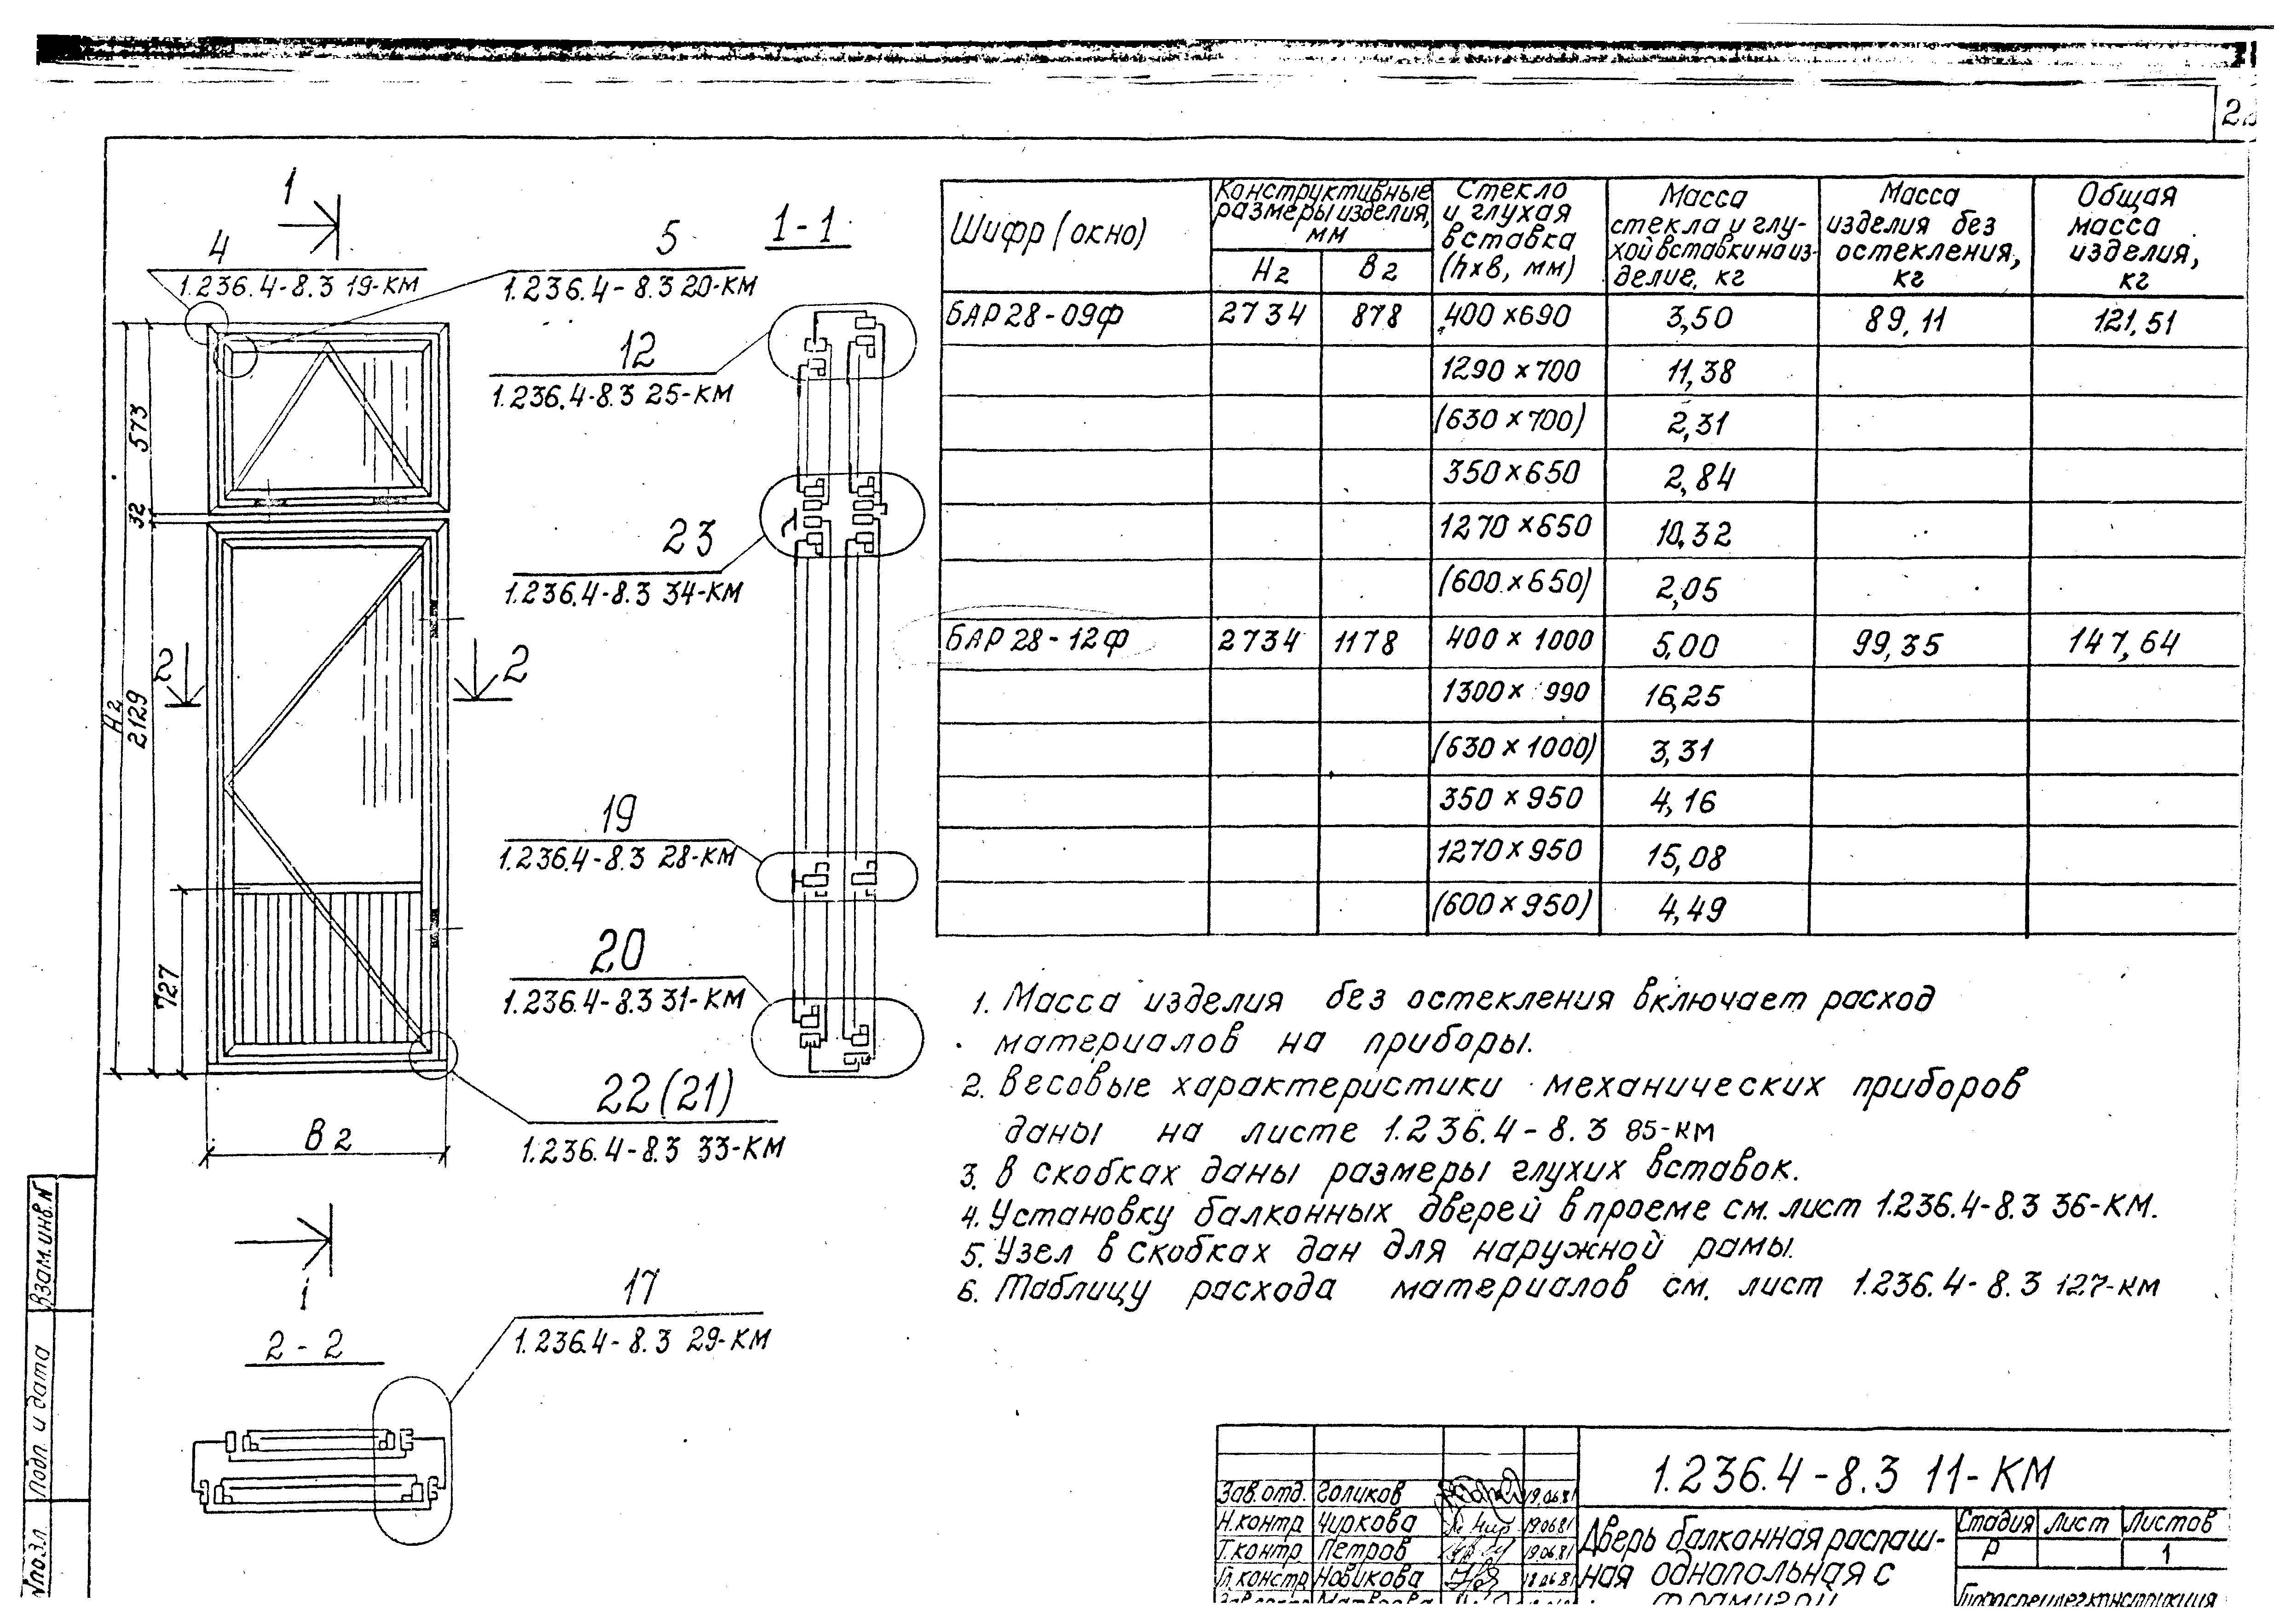 1
4
1.236.4-8.3 19-КМ
5
1.236.4-8.3 20-КМ
1-1
12
1.236.4-8.3 25-КМ
23
1.236.4-8.3 34-КМ
19
1.236.4-8.3 28-КМ
20
1.236.4-8.3 31-КМ
22(21)
1.236.4-8.3 33-КМ
573
32
2129
Н2
727
2
2
В2
1
2-2
17
1.236.4-8.3 29-КМ
Шифр (окно)
Конструктивные размеры изделия, мм
Н2
В2
Стекло
и глухая
вставка
(hхв, мм)
Масса
стекла и глу-
хой вставки на из-
делие, кг
Масса
изделия без
остекления,
кг
Общая
масса
изделия,
кг
БАР 28-09Ф 2734 878 400х690 3,50 89,11 121,51
1290х700 11,38
(630х700) 2,31
350х650 2,84
1270х650 10,32
(600х650) 2,05
БАР 28-12Ф 2734 1178 400х1000 5,00 99,35 147,64
1300х990 16,25
(630х1000) 3,31
350х950 4,16
1270х950 15,08
(600х950) 4,49
1. Масса изделия без остекления включает расход
материалов на приборы.
2. Весовые характеристики механических приборов
даны на листе 1.236.4-8.3 85-КМ
3. В скобках даны размеры глухих вставок.
4. Установку балконных дверей в проеме см. лист 1.236.4-8.3 36-КМ.
5. Узел в скобках дан для наружной рамы.
6. Таблицу расхода материалов см. лист 1.236.4-8.3 127-КМ
Взам.инв.N
Подп. и дата
Nподл.
Зав.отд. Голиков 19.06.81
Н.контр Чиркова 19.06.81
Т.контр Петров 19.06.81
Гл.констр Новикова 18.06.81
1.236.4-8.3 11-КМ
Дверь балконная распаш-
ная однопольная с
фрамугой
Стадия Лист Листов
Р 1